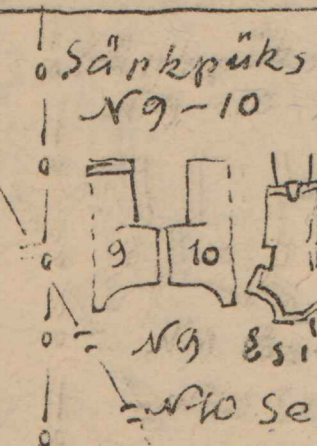 Särkpüks
N9-10
9 10
N9 Esi
N10 Se